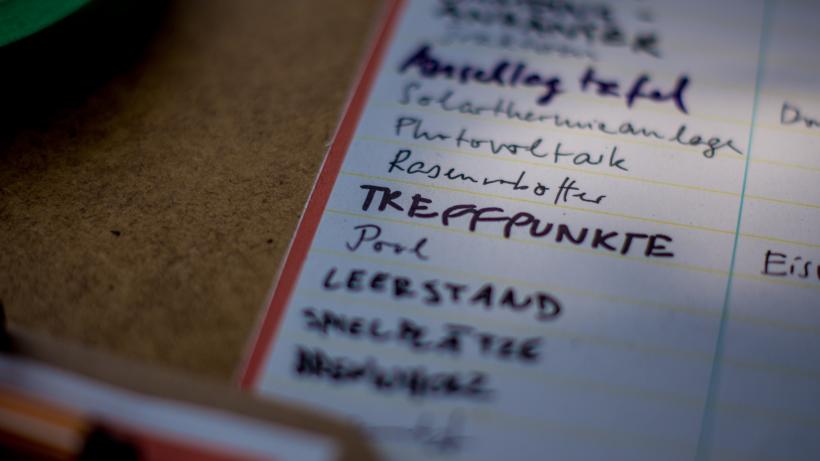 Anschlagtafel
Solarthermieanlage
Photovoltaik
Rasenroboter
TREFFPUNKTE
Pool
LEERSTAND
SPIELPLÄTZE
BRENNHOLZ